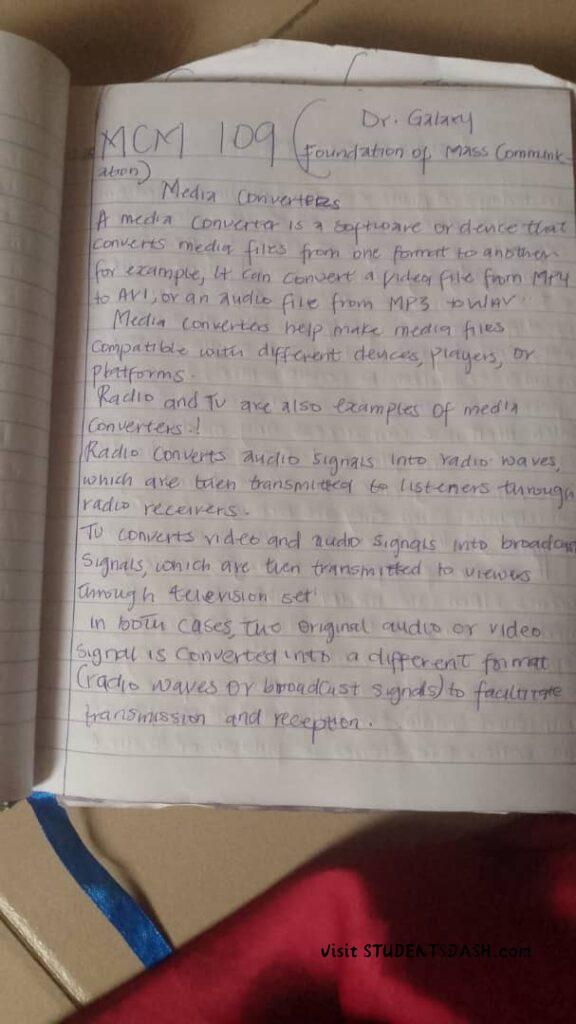 Dr. Galaxy
MCM 109 (Foundation of Mass Communic-
ation)
Media Converters
A media converter is a software or device that
converts media files from one format to another.
for example, it can convert a video file from MP4
to AVI, or an audio file from MP3 to WAV.
Media converters help make media files
compatible with different devices, players, or
platforms.
Radio and TV are also examples of media
converters!
Radio converts audio signals into radio waves,
which are then transmitted to listeners through
radio receivers.
TV converts video and audio signals into broadcast
signals, which are then transmitted to viewers
through television set
in both cases, the original audio or video
signal is converted into a different format
(radio waves or broadcast signals) to facilitate
transmission and reception.
Visit STUDENTSDASH.com